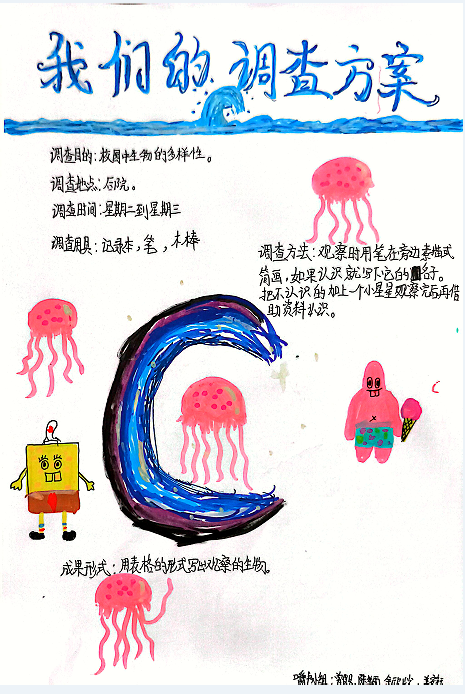 我们的调查方案
调查目的：校园中生物的多样性。
调查地点：后院。
调查时间：星期二到星期三
调查用具：记录本，笔，木棒
调查方法：观察时用笔在旁边素描式
简画，如果认识就写下它的名字。
把不认识的加上一个小星星观察完后再借
助资料认识。
成果形式：用表格的形式写出观察的生物。